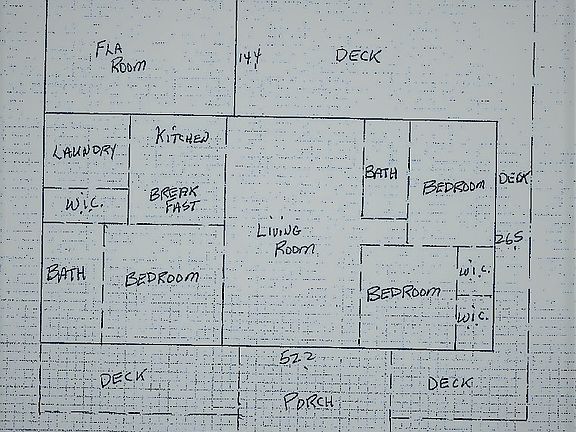 FLA
ROOM
144
DECK
LAUNDRY
KITCHEN
BATH
BEDROOM
DECK
W.I.C.
BREAK
FAST
LIVING
ROOM
265
BATH
BEDROOM
BEDROOM
W.I.C.
W.I.C.
522
DECK
PORCH
DECK